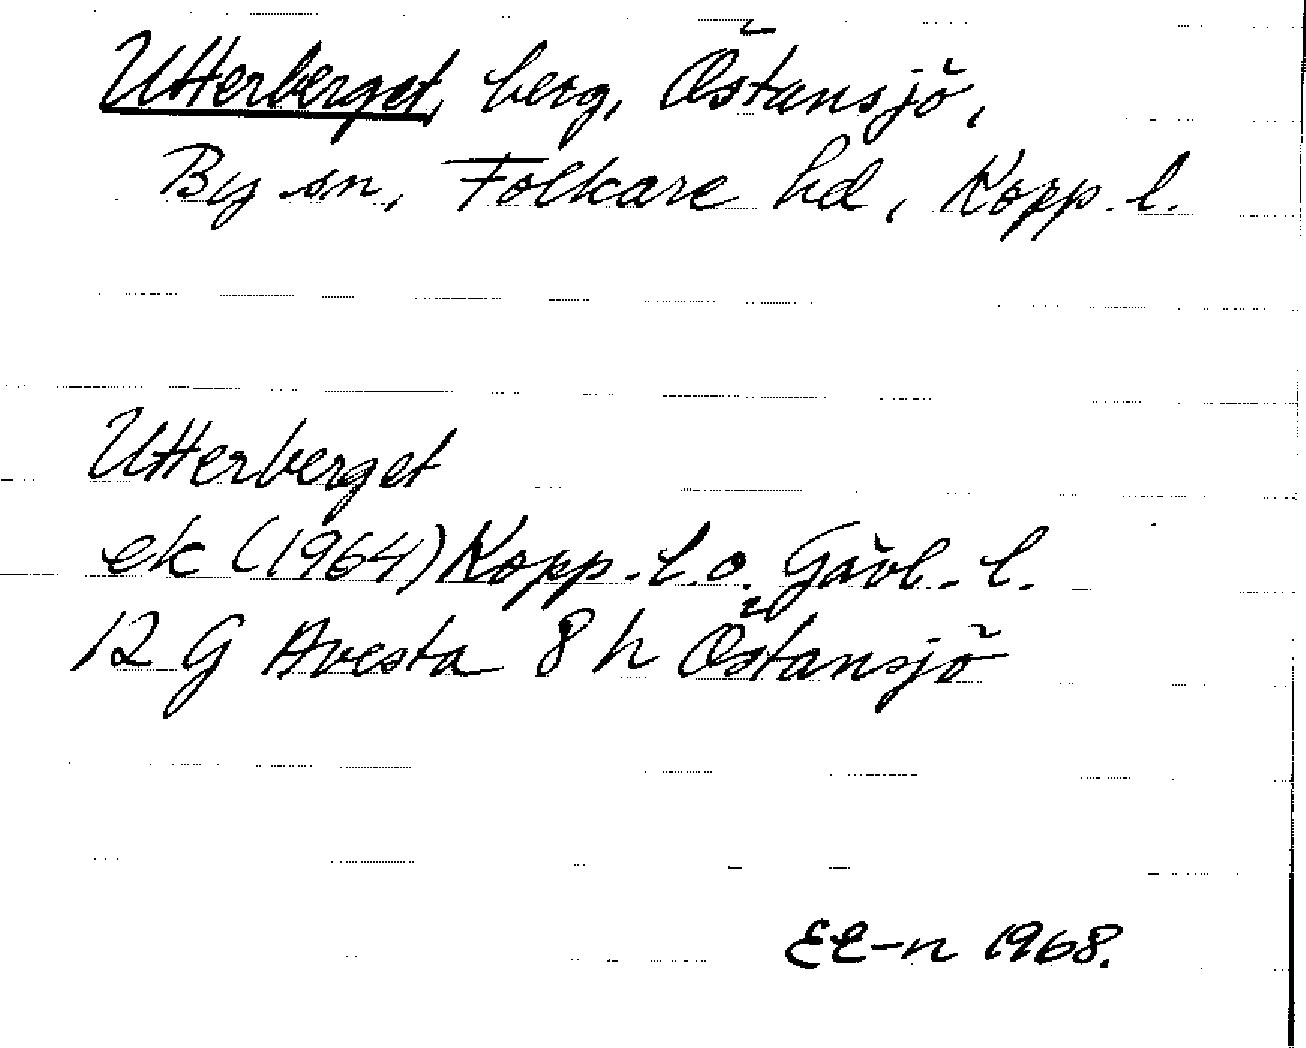 Utterberget, berg, Östansjö,
By sn, Folkare hd, Kopp. l.
Utterberget
ek (1964) Kopp. l. o. Gävl. l.
12 G Avesta 8 h Östansjö
EE-n 1968.